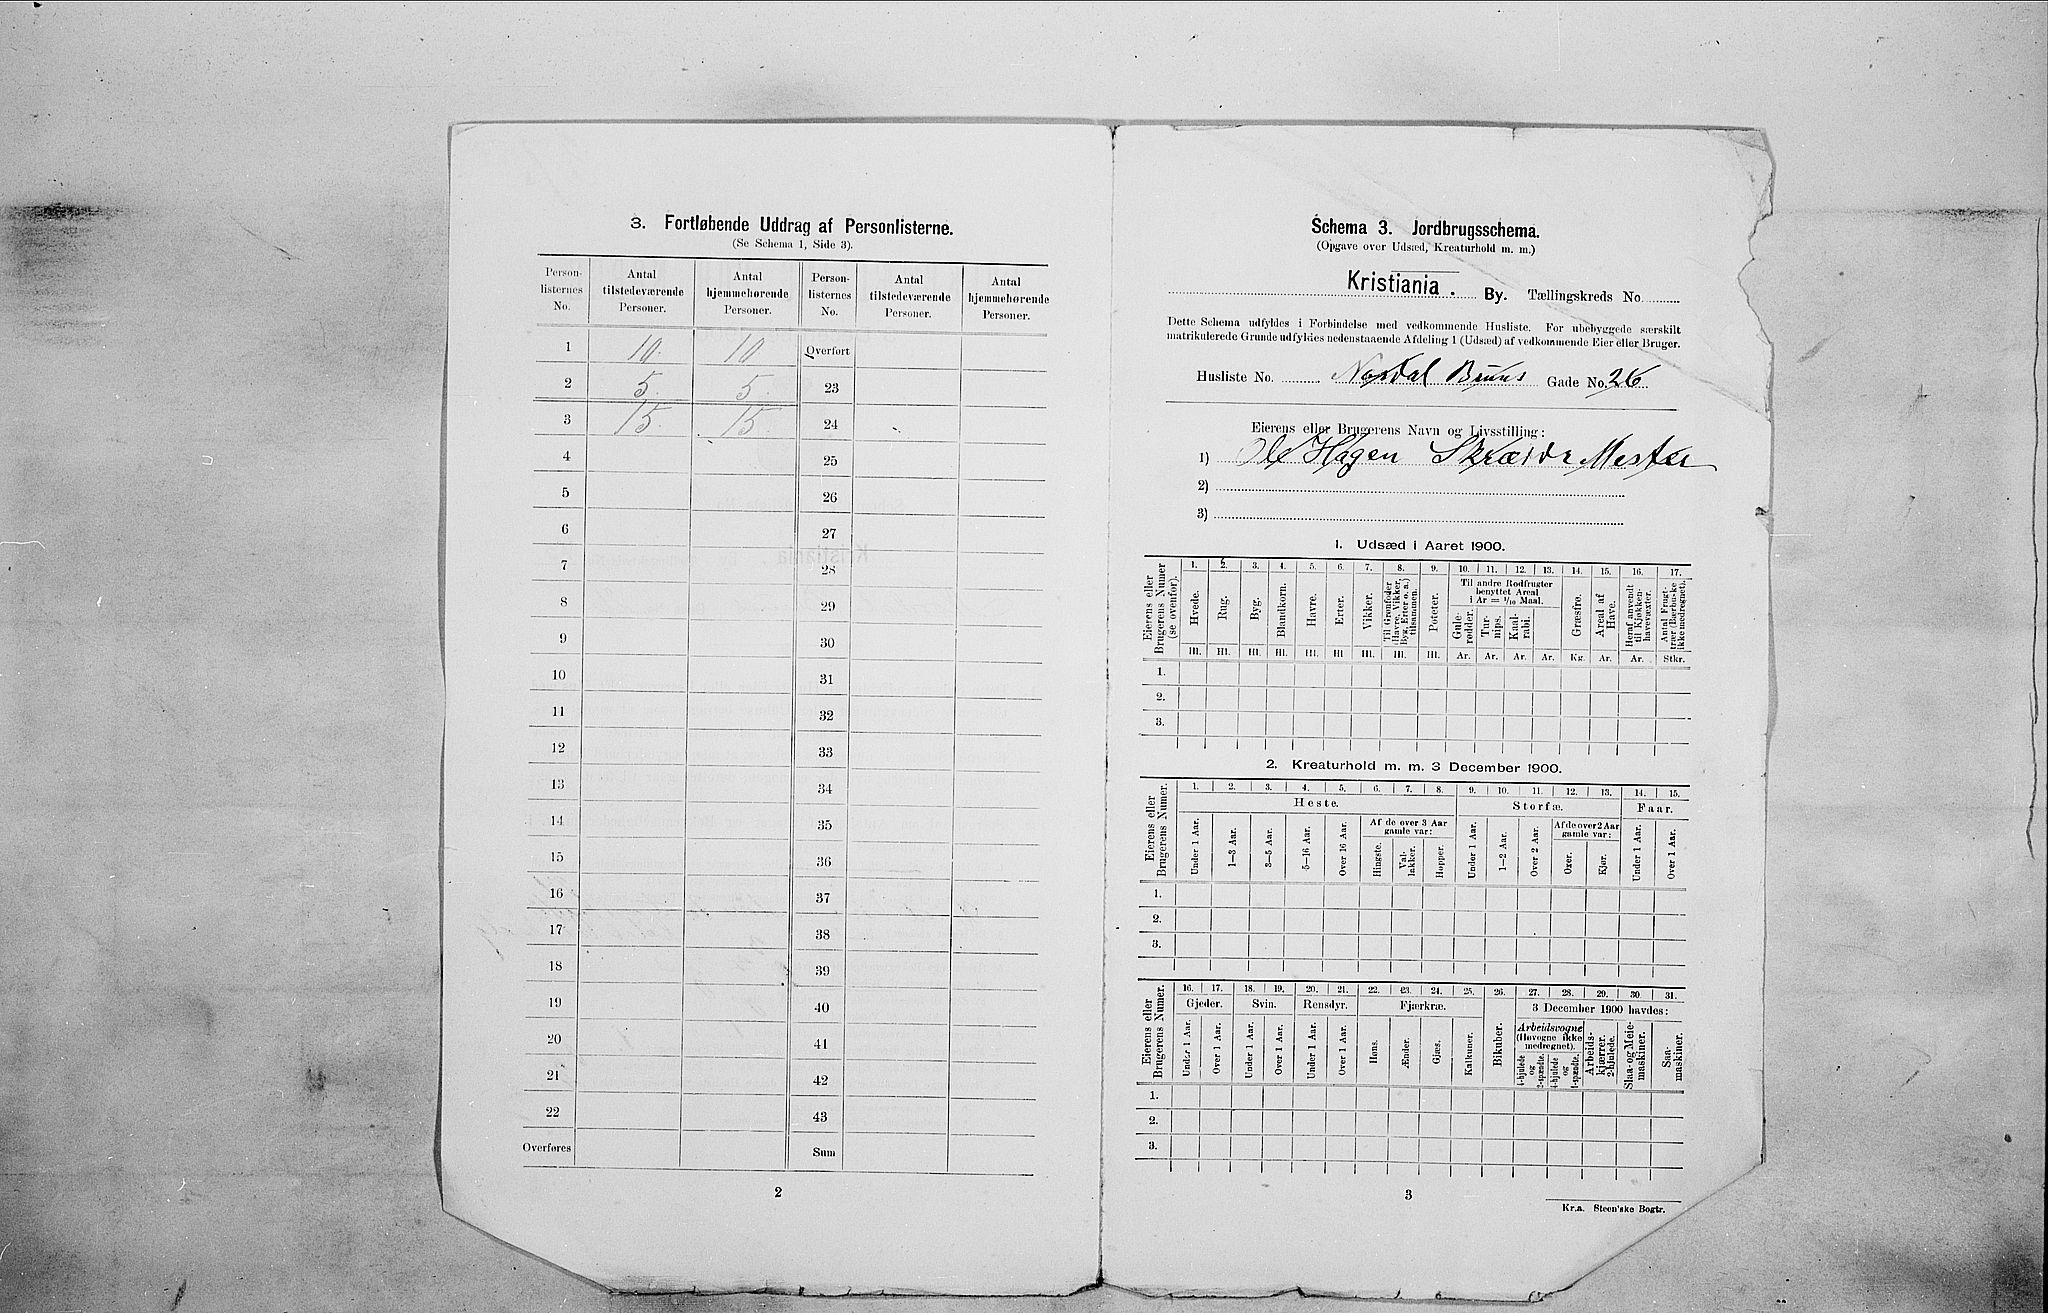 3. Fortløbende Uddrag af Personlisterne.
(Se Schema 1, Side 3).
Person-listernes No. Antal tilstedeværende Personer. Antal hjemmehørende Personer. Person-listernes No. Antal tilstedeværende Personer. Antal hjemmehørende Personer.
1 10. 10 Overført
2 5. 5. 23
3 15. 15. 24
4 25
5 26
6 27
7 28
8 29
9 30
10 31
11 32
12 33
13 34
14 35
15 36
16 37
17 38
18 39
19 40
20 41
21 42
22 43
Overføres Sum
2
Schema 3. Jordbrugsschema.
(Opgave over Udsæd, Kreaturhold m. m.)
Kristiania. By. Tællingskreds No.
Dette Schema udfyldes i Forbindelse med vedkommende Husliste. For ubebyggede særskilt
matrikulerede Grunde udfyldes nedenstaaende Afdeling 1 (Udsæd) af vedkommende Eier eller Bruger.
Husliste No. Nordal Bruns Gade No. 26
Eierens eller Brugerens Navn og Livsstilling:
1) Ole Hagen Skrædder Mester
2)
3)
1. Udsæd i Aaret 1900.
Eierens eller Brugerens Numer (se ovenfor).
1. 2. 3. 4. 5. 6. 7. 8. 9. 10. 11. 12. 13. 14. 15. 16. 17.
Hvede. Rug. Byg. Blandkorn. Havre. Erter. Vikker. Til Grønfoder (Havre, Vikker, Byg, Erter o. a.) tilsammen. Poteter. Til andre Rodfrugter benyttet Areal i Ar = 1/10 Maal. Gule-rødder. Tur-nips. Kaal-rabi. Græsfrø. Areal af Have. Heraf anvendt til Kjøkken-havevæxter. Antal Frugt-trær (Bærbuske ikke medregnet).
Hl. Hl. Hl. Hl. Hl. Hl Hl. Hl. Hl. Ar. Ar. Ar. Ar. Kg. Ar. Ar. Stkr.
1.
2.
3.
2. Kreaturhold m. m. 3 December 1900.
Eierens eller Brugerens Numer.
1. 2. 3. 4. 5. 6. 7. 8. 9. 10. 11. 12. 13. 14. 15.
Heste. Storfæ. Faar.
Under 1 Aar. 1—3 Aar. 3—5 Aar. 5—16 Aar. Over 16 Aar. Af de over 3 Aar gamle var: Hingste. Val-lakker. Hopper. Under 1 Aar. 1—2 Aar. Over 2 Aar. Af de over 2 Aar gamle var: Oxer. Kjør. Under 1 Aar. Over 1 Aar.
1.
2.
3.
Eierens eller Brugerens Numer.
16. 17. 18. 19. 20. 21. 22. 23. 24. 25. 26. 27. 28. 29. 30. 31.
Gjeder. Svin. Rensdyr. Fjærkræ. Bikuber. 3 December 1900 havdes:
Under 1 Aar. Over 1 Aar. Under 1 Aar. Over 1 Aar. Under 1 Aar. Over 1 Aar. Høns. Ænder. Gjæs. Kalkuner. Arbeidsvogne (Høvogne ikke medregnet). 4-hjulede og 2-spændte. 4-hjulede og 1-spændte. Arbeids-kjærrer, 2-hjulede. Slaa- og Meie-maskiner. Saa-maskiner.
1.
2.
3.
3
Kr.a. Steen'ske Bogtr.